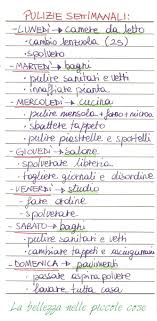 PULIZIE SETTIMANALI:
- LUNEDÌ → camere da letto
• cambio lenzuola (2S)
• spolvero
- MARTEDÌ → bagni
• pulire sanitari e vetri
• innaffiare pianta
- MERCOLEDÌ → cucina
• pulire mensola + forno + micro
• sbattere tappeto
• pulire piastrelle e sportelli
- GIOVEDÌ → salone
• spolverare libreria
• togliere giornali e disordine
- VENERDÌ → studio
• fare ordine
• spolverare
- SABATO → bagni
• pulire sanitari e vetri
• cambiare tappeti e asciugamani
- DOMENICA → pavimenti
• passare aspirapolvere
• lavare tutta casa
La bellezza nelle piccole cose